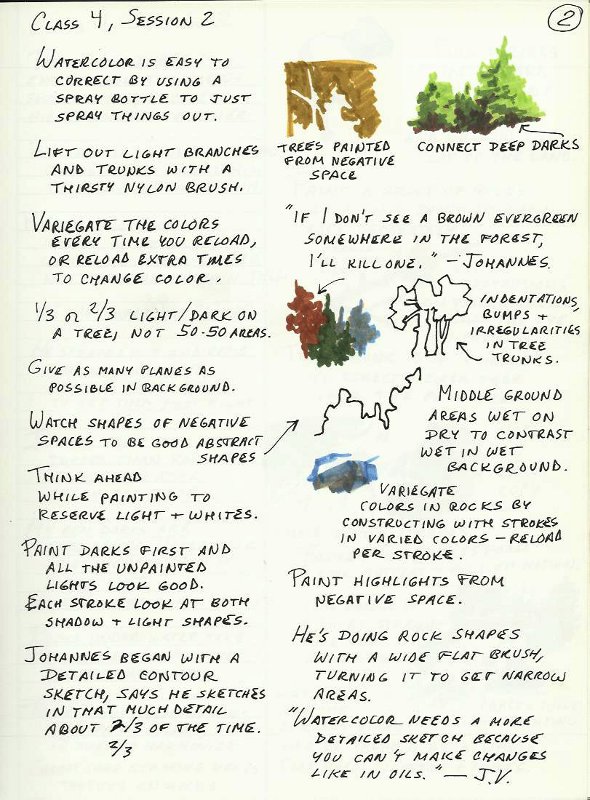 CLASS 4, SESSION 2
2
WATERCOLOR IS EASY TO
CORRECT BY USING A
SPRAY BOTTLE TO JUST
SPRAY THINGS OUT.
LIFT OUT LIGHT BRANCHES
AND TRUNKS WITH A
THIRSTY NYLON BRUSH.
VARIEGATE THE COLORS
EVERY TIME YOU RELOAD,
OR RELOAD EXTRA TIMES
TO CHANGE COLOR.
1/3 OR 2/3 LIGHT/DARK ON
A TREE, NOT 50-50 AREAS.
GIVE AS MANY PLANES AS
POSSIBLE IN BACKGROUND.
WATCH SHAPES OF NEGATIVE
SPACES TO BE GOOD ABSTRACT
SHAPES
THINK AHEAD
WHILE PAINTING TO
RESERVE LIGHT + WHITES.
PAINT DARKS FIRST AND
ALL THE UNPAINTED
LIGHTS LOOK GOOD.
EACH STROKE LOOK AT BOTH
SHADOW + LIGHT SHAPES.
JOHANNES BEGAN WITH A
DETAILED CONTOUR
SKETCH, SAYS HE SKETCHES
IN THAT MUCH DETAIL
ABOUT 2/3 OF THE TIME.
2/3
TREES PAINTED
FROM NEGATIVE
SPACE
CONNECT DEEP DARKS
"IF I DON'T SEE A BROWN EVERGREEN
SOMEWHERE IN THE FOREST,
I'LL KILL ONE." – JOHANNES
INDENTATIONS,
BUMPS +
IRREGULARITIES
IN TREE
TRUNKS.
MIDDLE GROUND
AREAS WET ON
DRY TO CONTRAST
WET IN WET
BACKGROUND.
VARIEGATE
COLORS IN ROCKS BY
CONSTRUCTING WITH STROKES
IN VARIED COLORS – RELOAD
PER STROKE.
PAINT HIGHLIGHTS FROM
NEGATIVE SPACE.
HE'S DOING ROCK SHAPES
WITH A WIDE FLAT BRUSH,
TURNING IT TO GET NARROW
AREAS.
"WATERCOLOR NEEDS A MORE
DETAILED SKETCH BECAUSE
YOU CAN'T MAKE CHANGES
LIKE IN OILS." – J.V.